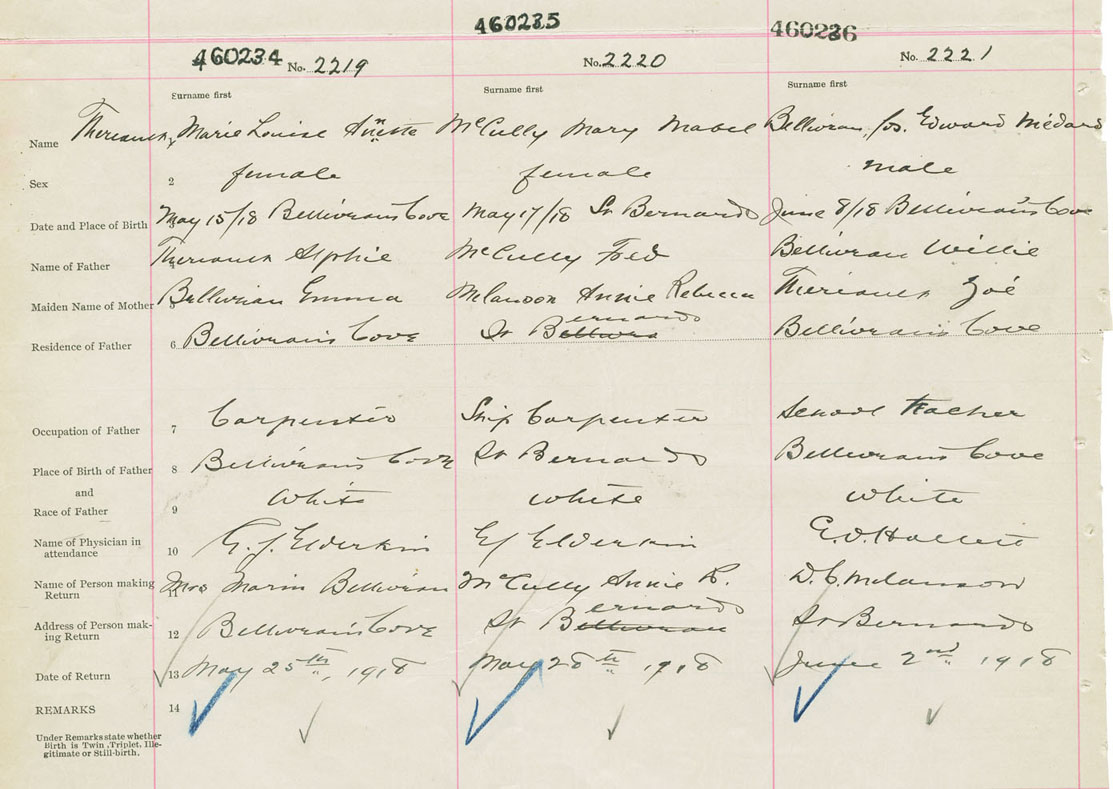 460234 460235 460236
No. 2219 No. 2220 No. 2221
Surname first Surname first Surname first
Name Theriault, Marie Louise Annette McCully Mary Mabel Belliveau, Jos. Edward Médard
Sex 2 female female male
Date and Place of Birth 3 May 15/18 Belliveau's Cove May 17/18 St Bernards June 8/18 Belliveau's Cove
Name of Father 4 Theriault Alphie McCully Fred Belliveau Willie
Maiden Name of Mother 5 Belliveau Emma Melanson Annie Rebecca Theriault Zoé
Residence of Father 6 Belliveau's Cove St Bernards Belliveau's Cove
Occupation of Father 7 Carpenter Ship Carpenter School Teacher
Place of Birth of Father 8 Belliveau's Cove St Bernards Belliveau's Cove
and
Race of Father 9 White white white
Name of Physician in
attendance 10 Elderkin EJ Elderkin Hallett
Name of Person making
Return 11 Mrs Belliveau McCully Annie R. D. C. Melanson
Address of Person mak-
ing Return 12 Belliveau's Cove St Bernards St Bernards
Date of Return 13 May 25th, 1918 May 28th 1918 June 2nd 1918
REMARKS 14
Under Remarks state whether
Birth is Twin, Triplet, Ille-
gitimate or Still-birth.